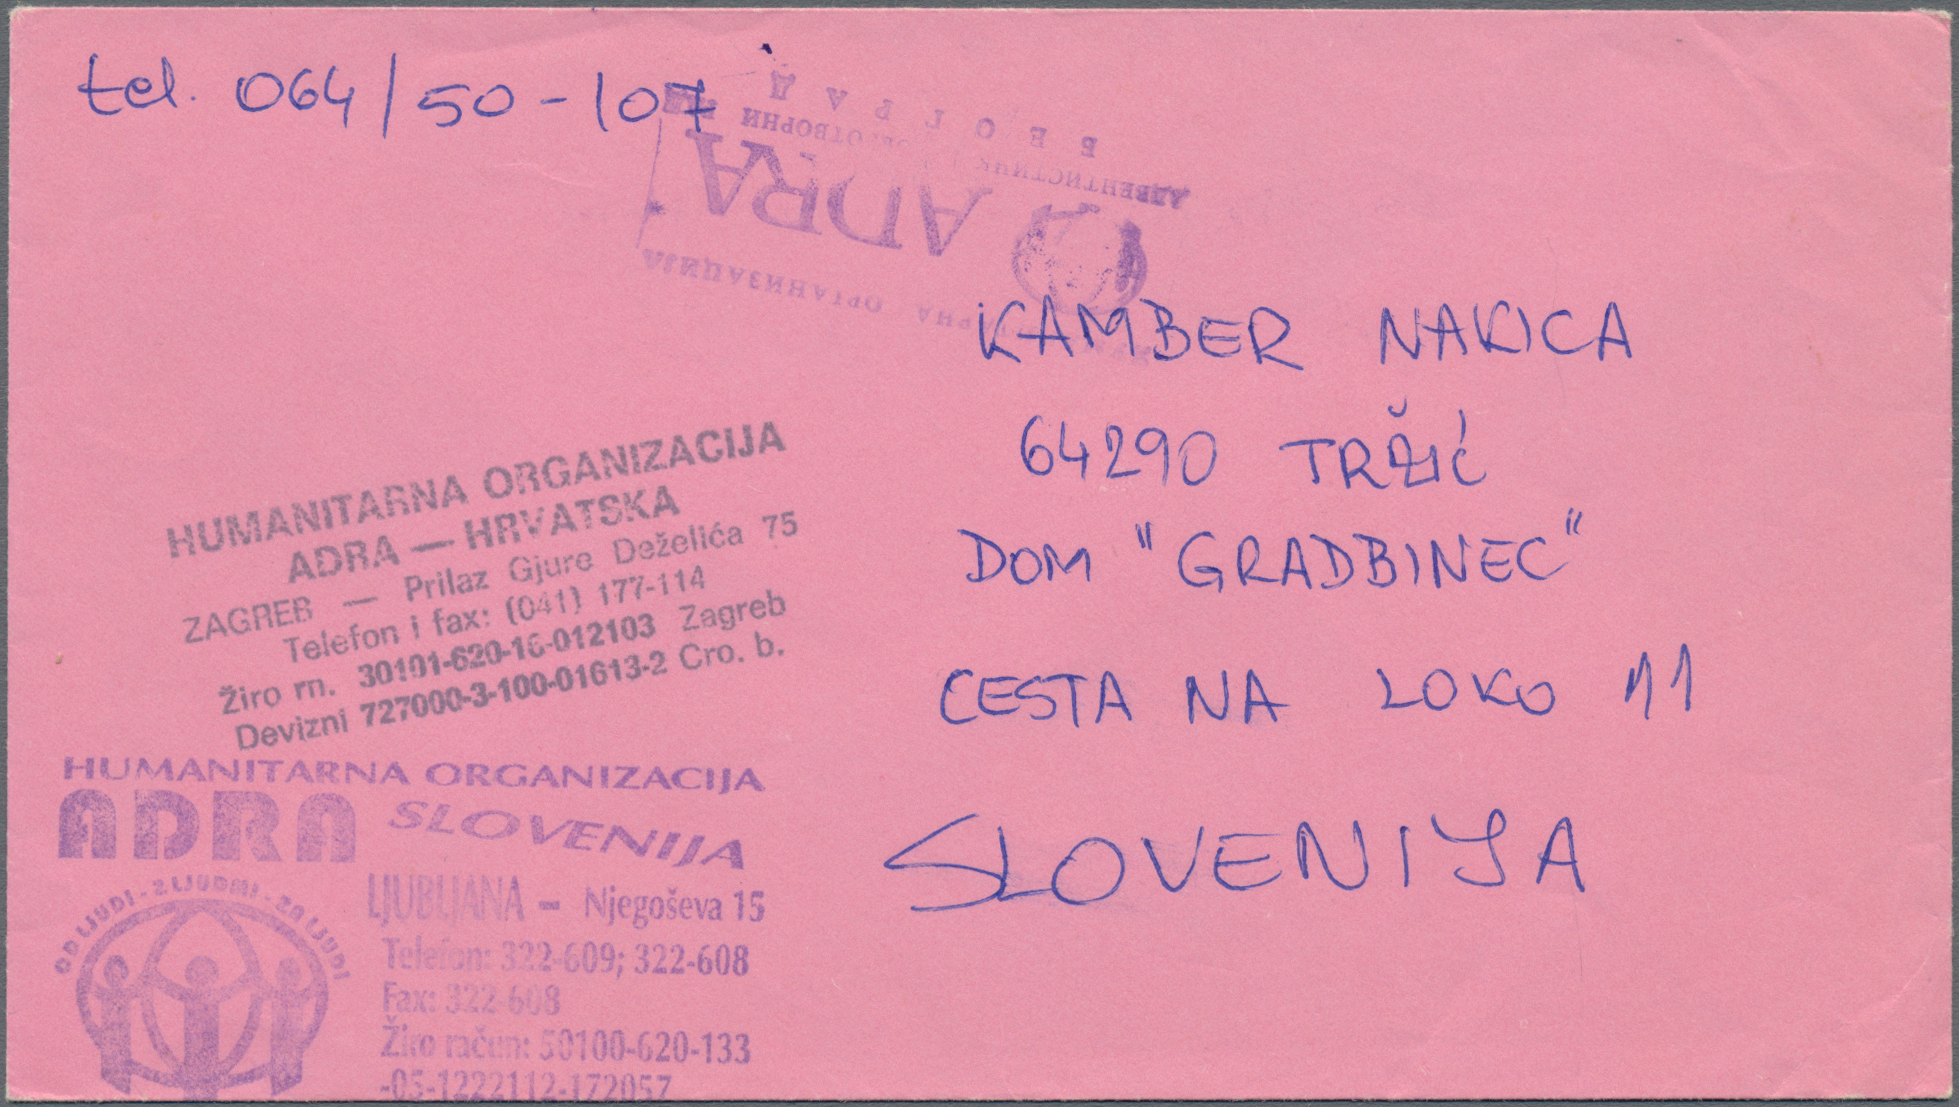 tel. 064/50-107
БЕОГРАД
АДВЕНТИСТИЧК ДОБРОТВОРНИ
ADRA
ОРГАНИЗАЦИЈА
KAMBER NAKICA
64290 TRŽIĆ
DOM "GRADBINEC"
CESTA NA LOKO 11
SLOVENIJA
HUMANITARNA ORGANIZACIJA
ADRA — HRVATSKA
ZAGREB — Prilaz Gjure Deželića 75
Telefon i fax: (041) 177-114
Žiro rn. 30101-620-16-012103 Zagreb
Devizni 727000-3-100-01613-2 Cro. b.
HUMANITARNA ORGANIZACIJA
ADRA SLOVENIJA
OD LJUDI - Z LJUDMI - ZA LJUDI
LJUBLJANA – Njegoševa 15
Telefon: 322-609; 322-608
Fax: 322-608
Žiro račun: 50100-620-133
-05-1222112-172057